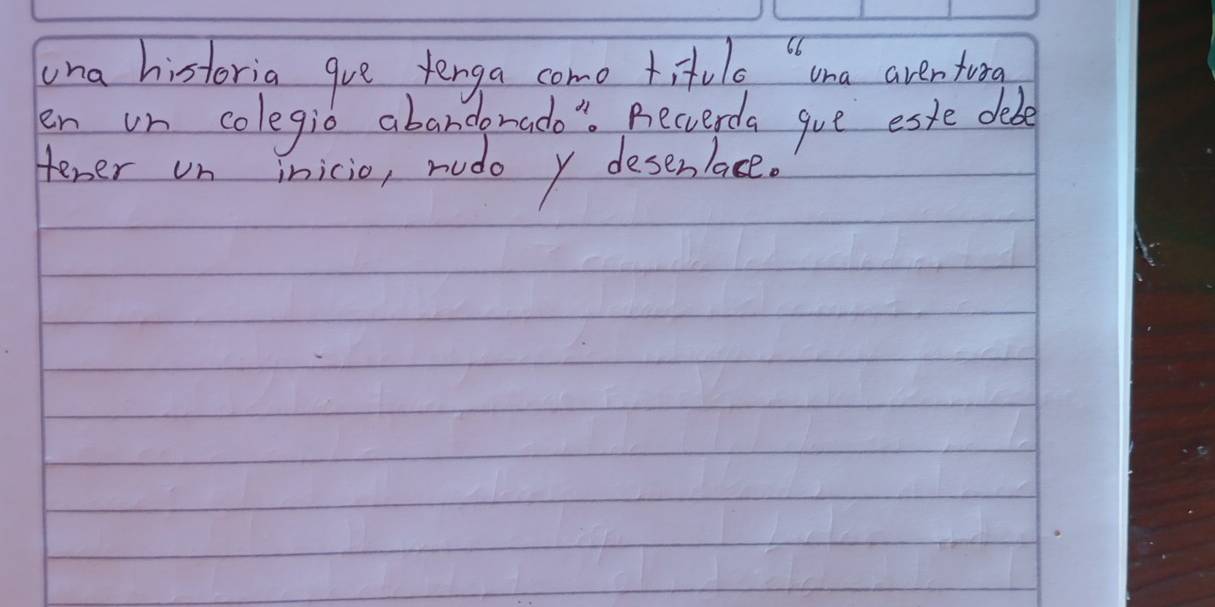 una historia que tenga como título "una aventura
en un colegio abandonado". Recuerda que este debe
tener un inicio, nudo y desenlace.